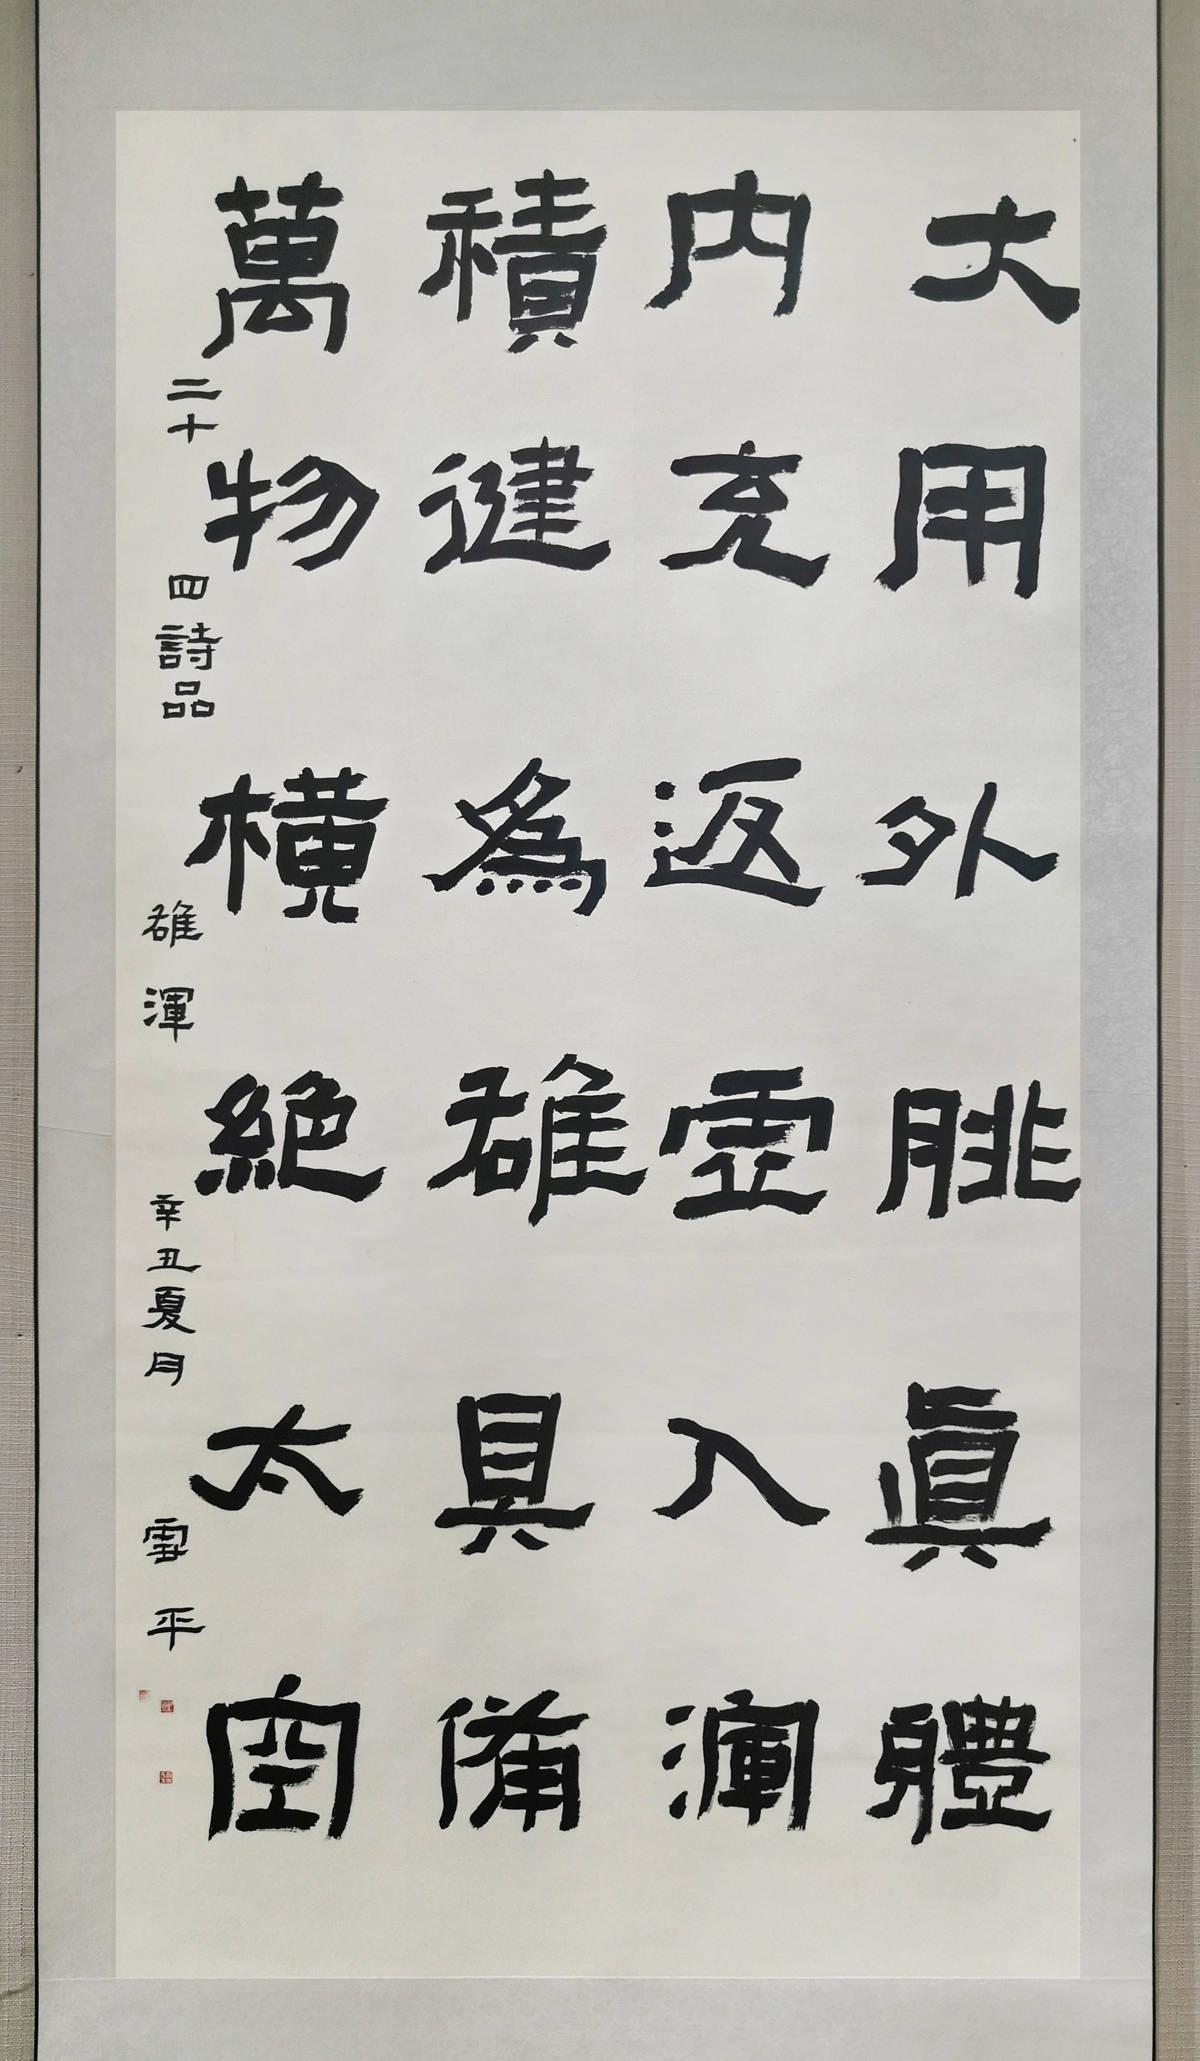 大用外腓眞體
内充返虛入渾
積健為雄具備
萬物橫絕太空
二十四詩品 雄渾 辛丑夏月 雪平